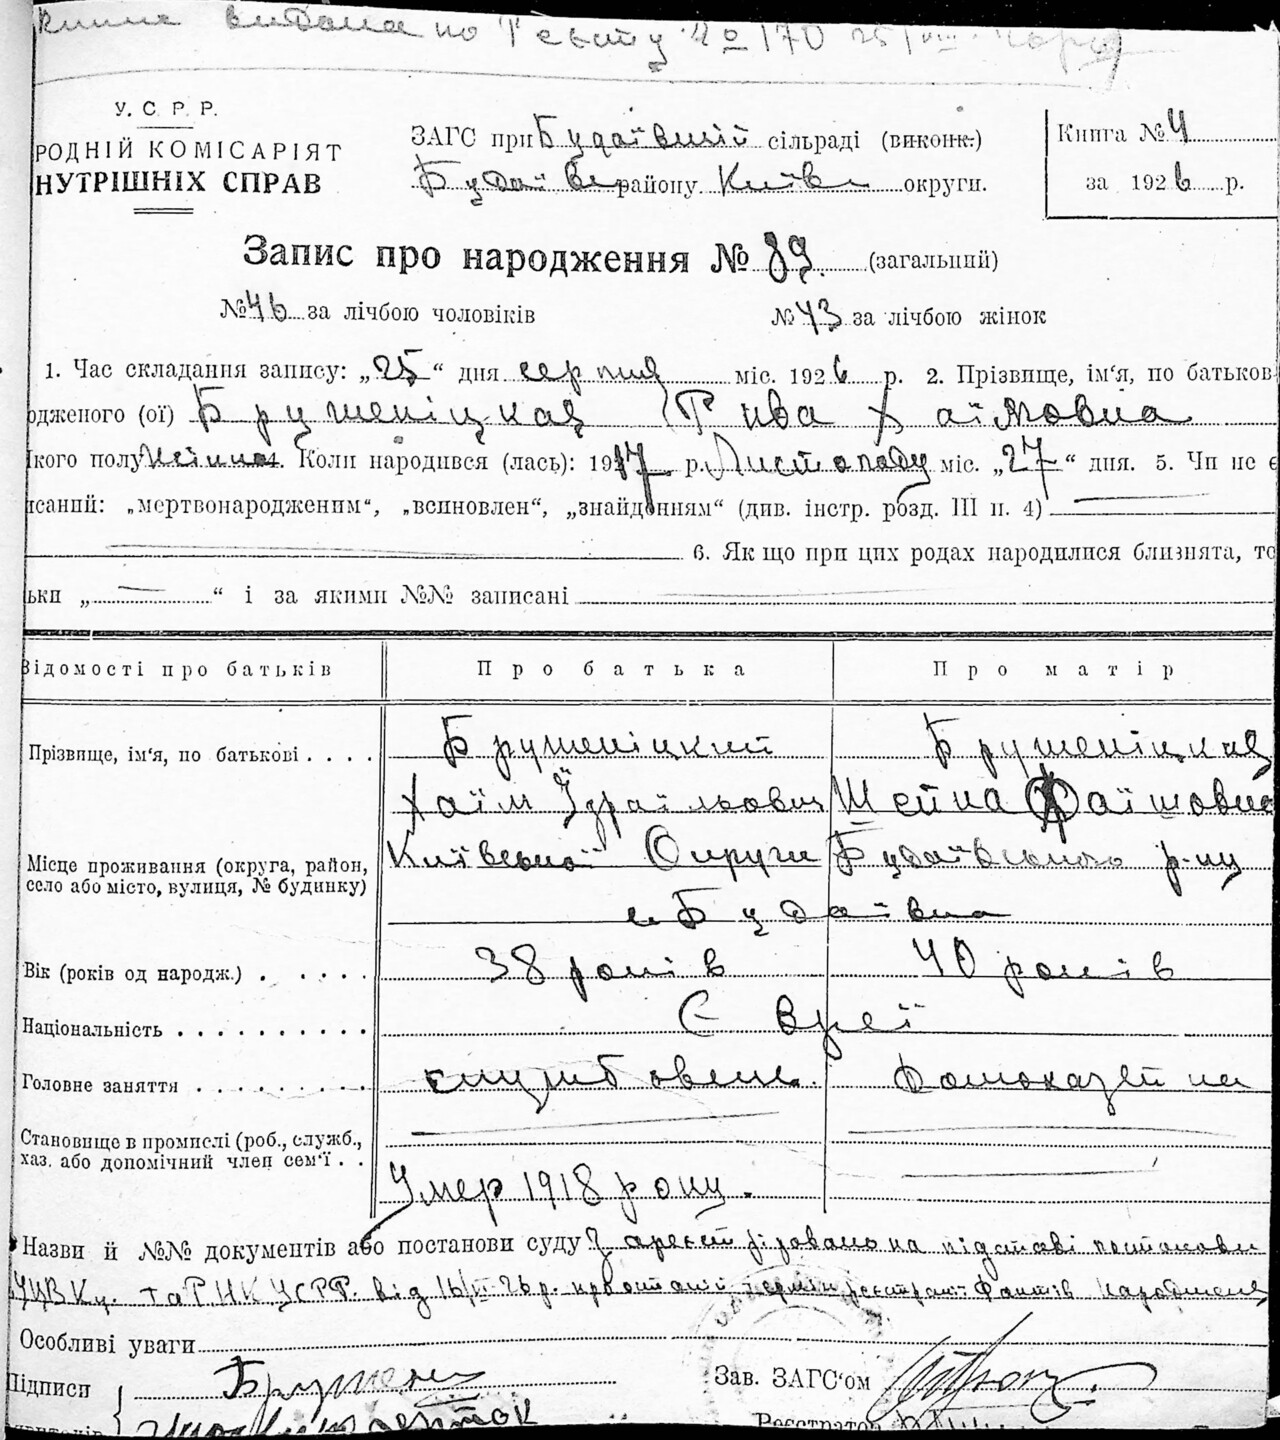 видана по № 170 25/VIII
У. С. Р. Р.
РОДНІЙ КОМІСАРІЯТ
НУТРІШНІХ СПРАВ
ЗАГС при Будаївській сільраді (виконк.)
Будаївськ району Київськ округи.
Книга № 4
за 1926 р.
Запис про народження № 89 (загальний)
№ 46 за лічбою чоловіків
№ 43 за лічбою жінок
1. Час складання запису: „25“ дня серпня міс. 1926 р. 2. Прізвище, ім‘я, по батьков
одженого (ої) Брушеніцкая Рива Хаїмовна
якого полу жіночa 4. Коли народився (лась): 1917 р. Листопаду міс. „27“ дня. 5. Чи не є
исаний: „мертвонародженим“, „всиновлен“, „знайденням“ (див. інстр. розд. III п. 4)
6. Як що при цих родах народилися близнята, то
ьки „ “ і за якими №№ записані
Відомості про батьків
Про батька
Про матір
Прізвище, ім‘я, по батькові . . . .
Брушеніцкий
Брушеніцкая
Хаїм Ізраїльович
Шейна
Місце проживання (округа, район,
село або місто, вулиця, № будинку)
Київської Округи Будаївського р-ну
с. Будаївка
Вік (років од народж.) . . . . .
38 років
40 років
Національність . . . . . . . . . .
Євреї
Головне заняття . . . . . . . .
службовець.
Домохазяйка
Становище в промислі (роб., служб.,
хаз. або допомічний член сем‘ї . .
Умер 1918 року.
Назви й №№ документів або постанови суду Зареєстріровано на підставі постанови
УЦВКу. та РНК УСРР. від 16/VI 26 р. про термін реєстрації фактів народження
Особливі уваги
Підписи
Брушен
Зав. ЗАГС‘ом
Реєстратор